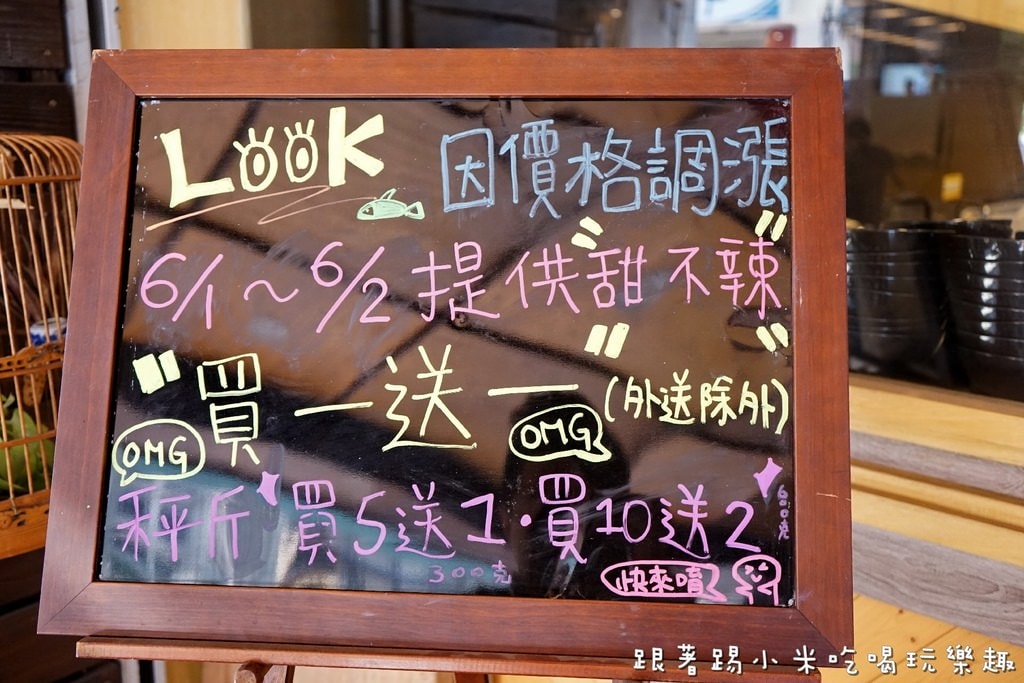 LOOK 因價格調漲
6/1~6/2 提供"甜不辣"
"買一送一"(外送除外)
OMG OMG
秤斤 買5送1·買10送2
300克 600克
快來唷
跟著踢小米吃喝玩樂趣